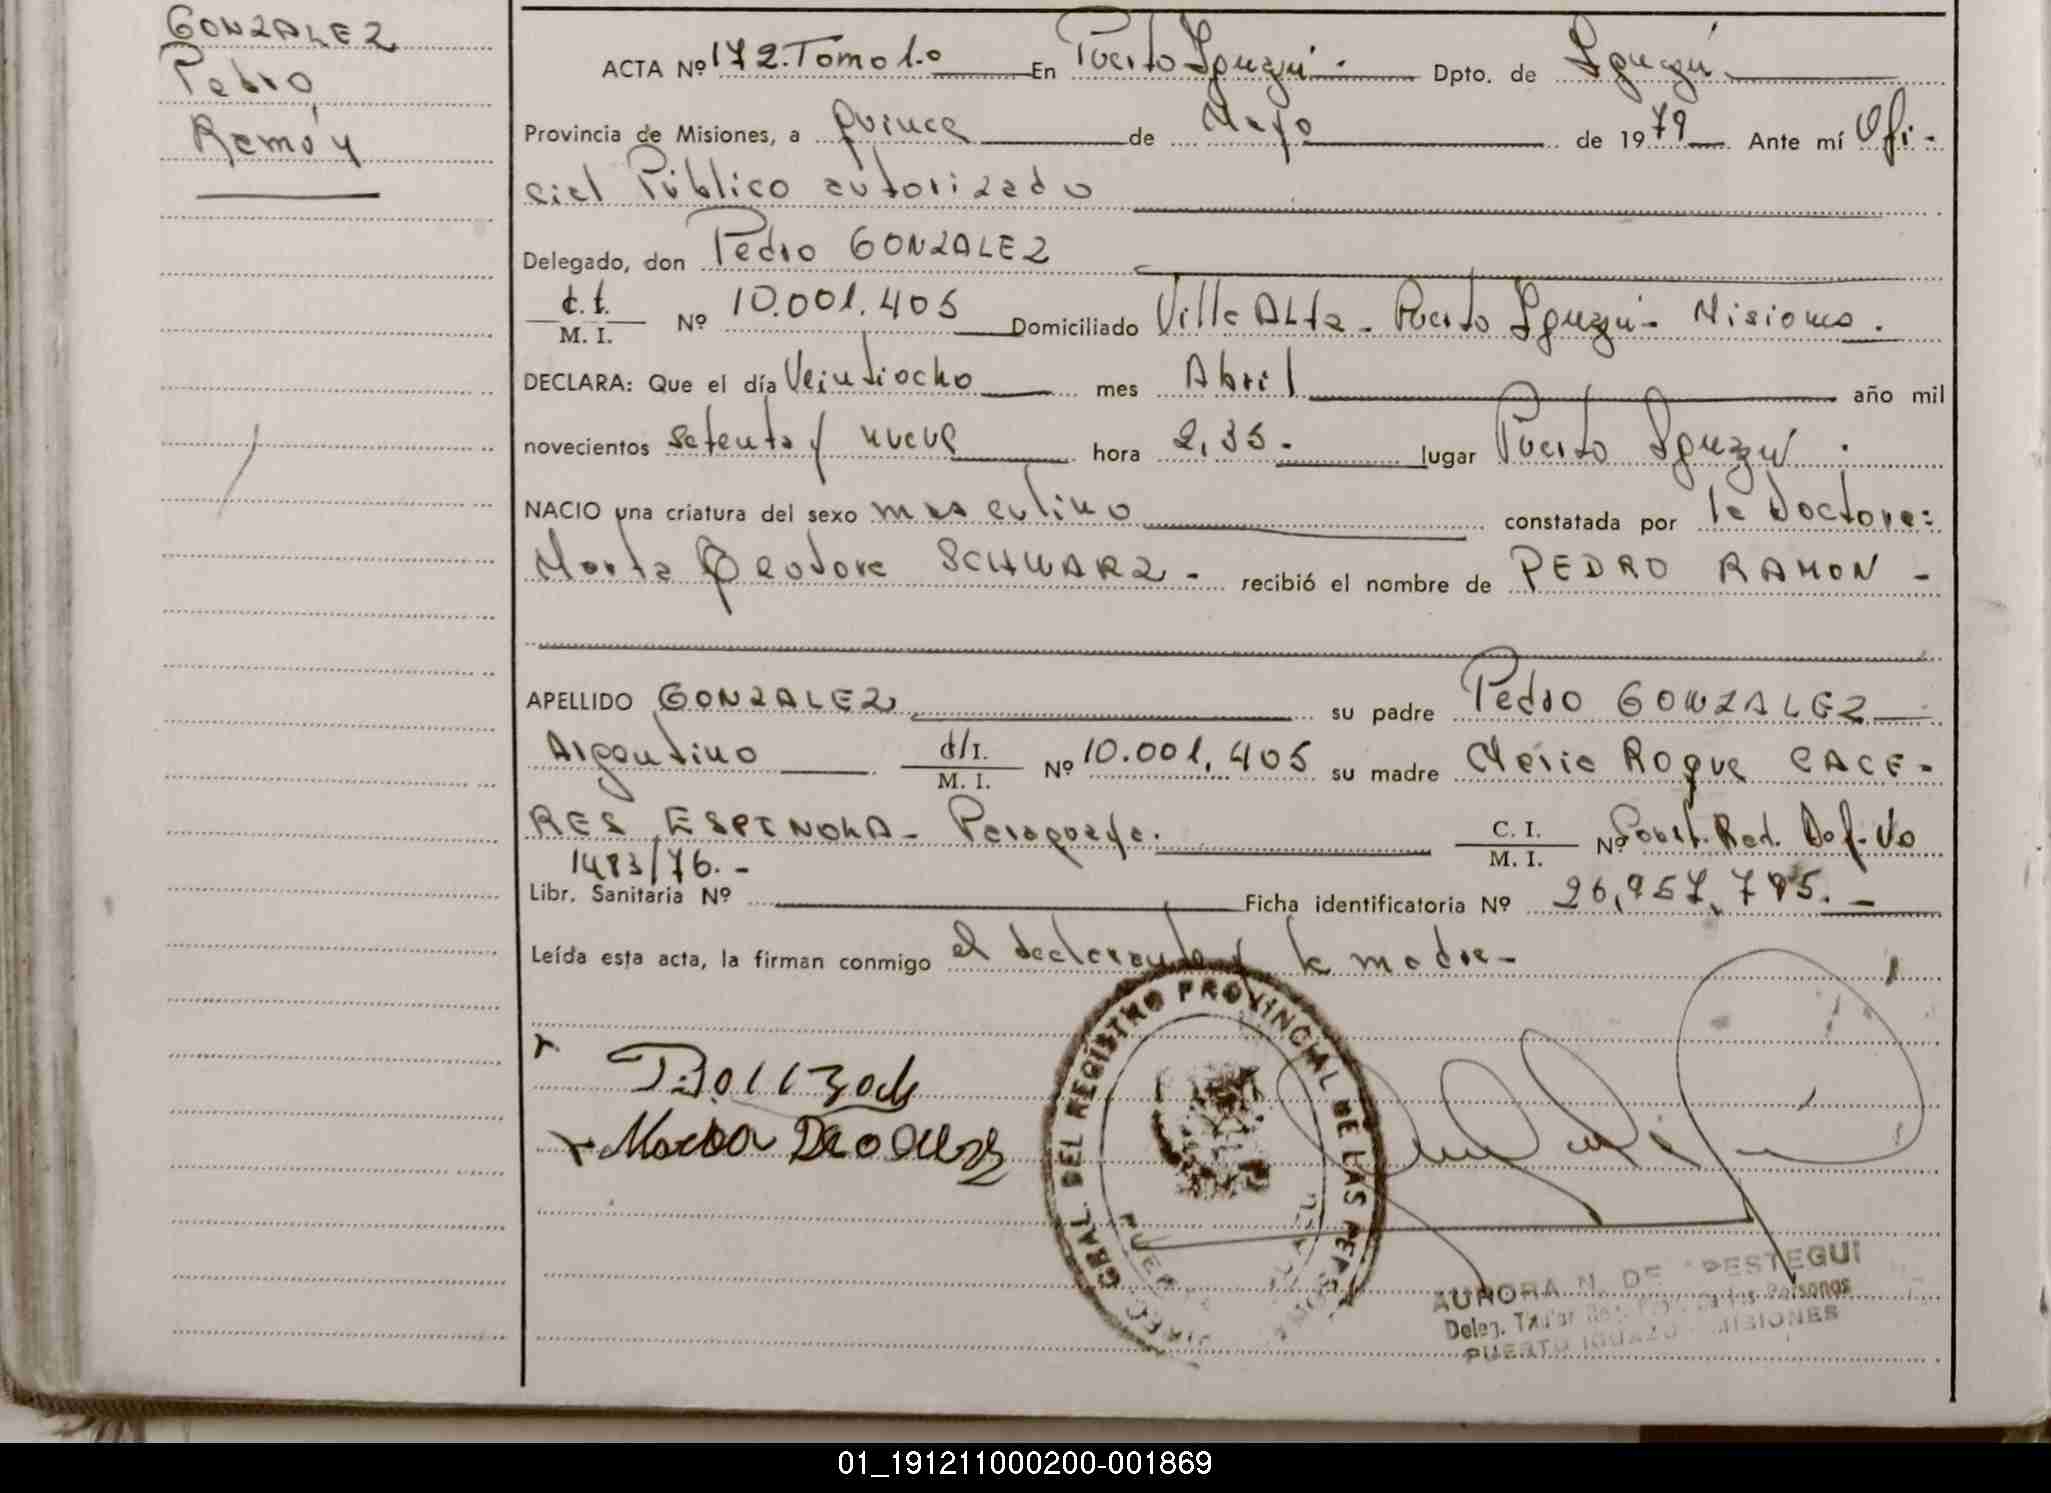 GONZALEZ
Pedro
Ramón
ACTA Nº 172. Tomo 1.o En Puerto Iguazú. Dpto. de Iguazú
Provincia de Misiones, a quince de Mayo de 1979 Ante mí Ofi-
cial Público autorizado
Delegado, don Pedro GONZALEZ
M. I. Nº 10.001.405 Domiciliado Villa Alta - Puerto Iguazú - Misiones.
DECLARA: Que el día Veintiocho mes Abril año mil
novecientos setenta y nueve hora 2,35.- lugar Puerto Iguazú.
NACIO una criatura del sexo masculino constatada por la Doctora:
Marta Teodora SCHWARZ - recibió el nombre de PEDRO RAMON -
APELLIDO GONZALEZ su padre Pedro GONZALEZ
Argentino d/I. M. I. Nº 10.001.405 su madre Maria Roque CACE-
RES ESPINOLA - Paraguaya. C. I. M. I. Nº Rad. Def. No
1483/76.-
Libr. Sanitaria Nº Ficha identificatoria Nº 26,957,795.-
Leída esta acta, la firman conmigo el declarante y la madre-
GRAL. DEL REGISTRO PROVINCIAL DE LAS PERSONAS
AURORA N. DE
Deleg. Titular Personas
PUERTO IGUAZU MISIONES
01_191211000200-001869